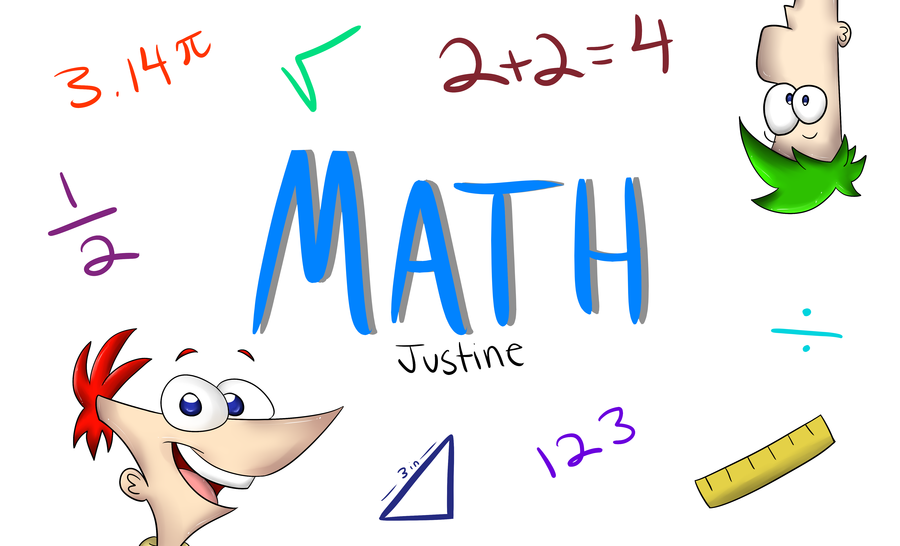 3.14π
√
2+2=4
1/2
MATH
Justine
÷
3 in
123